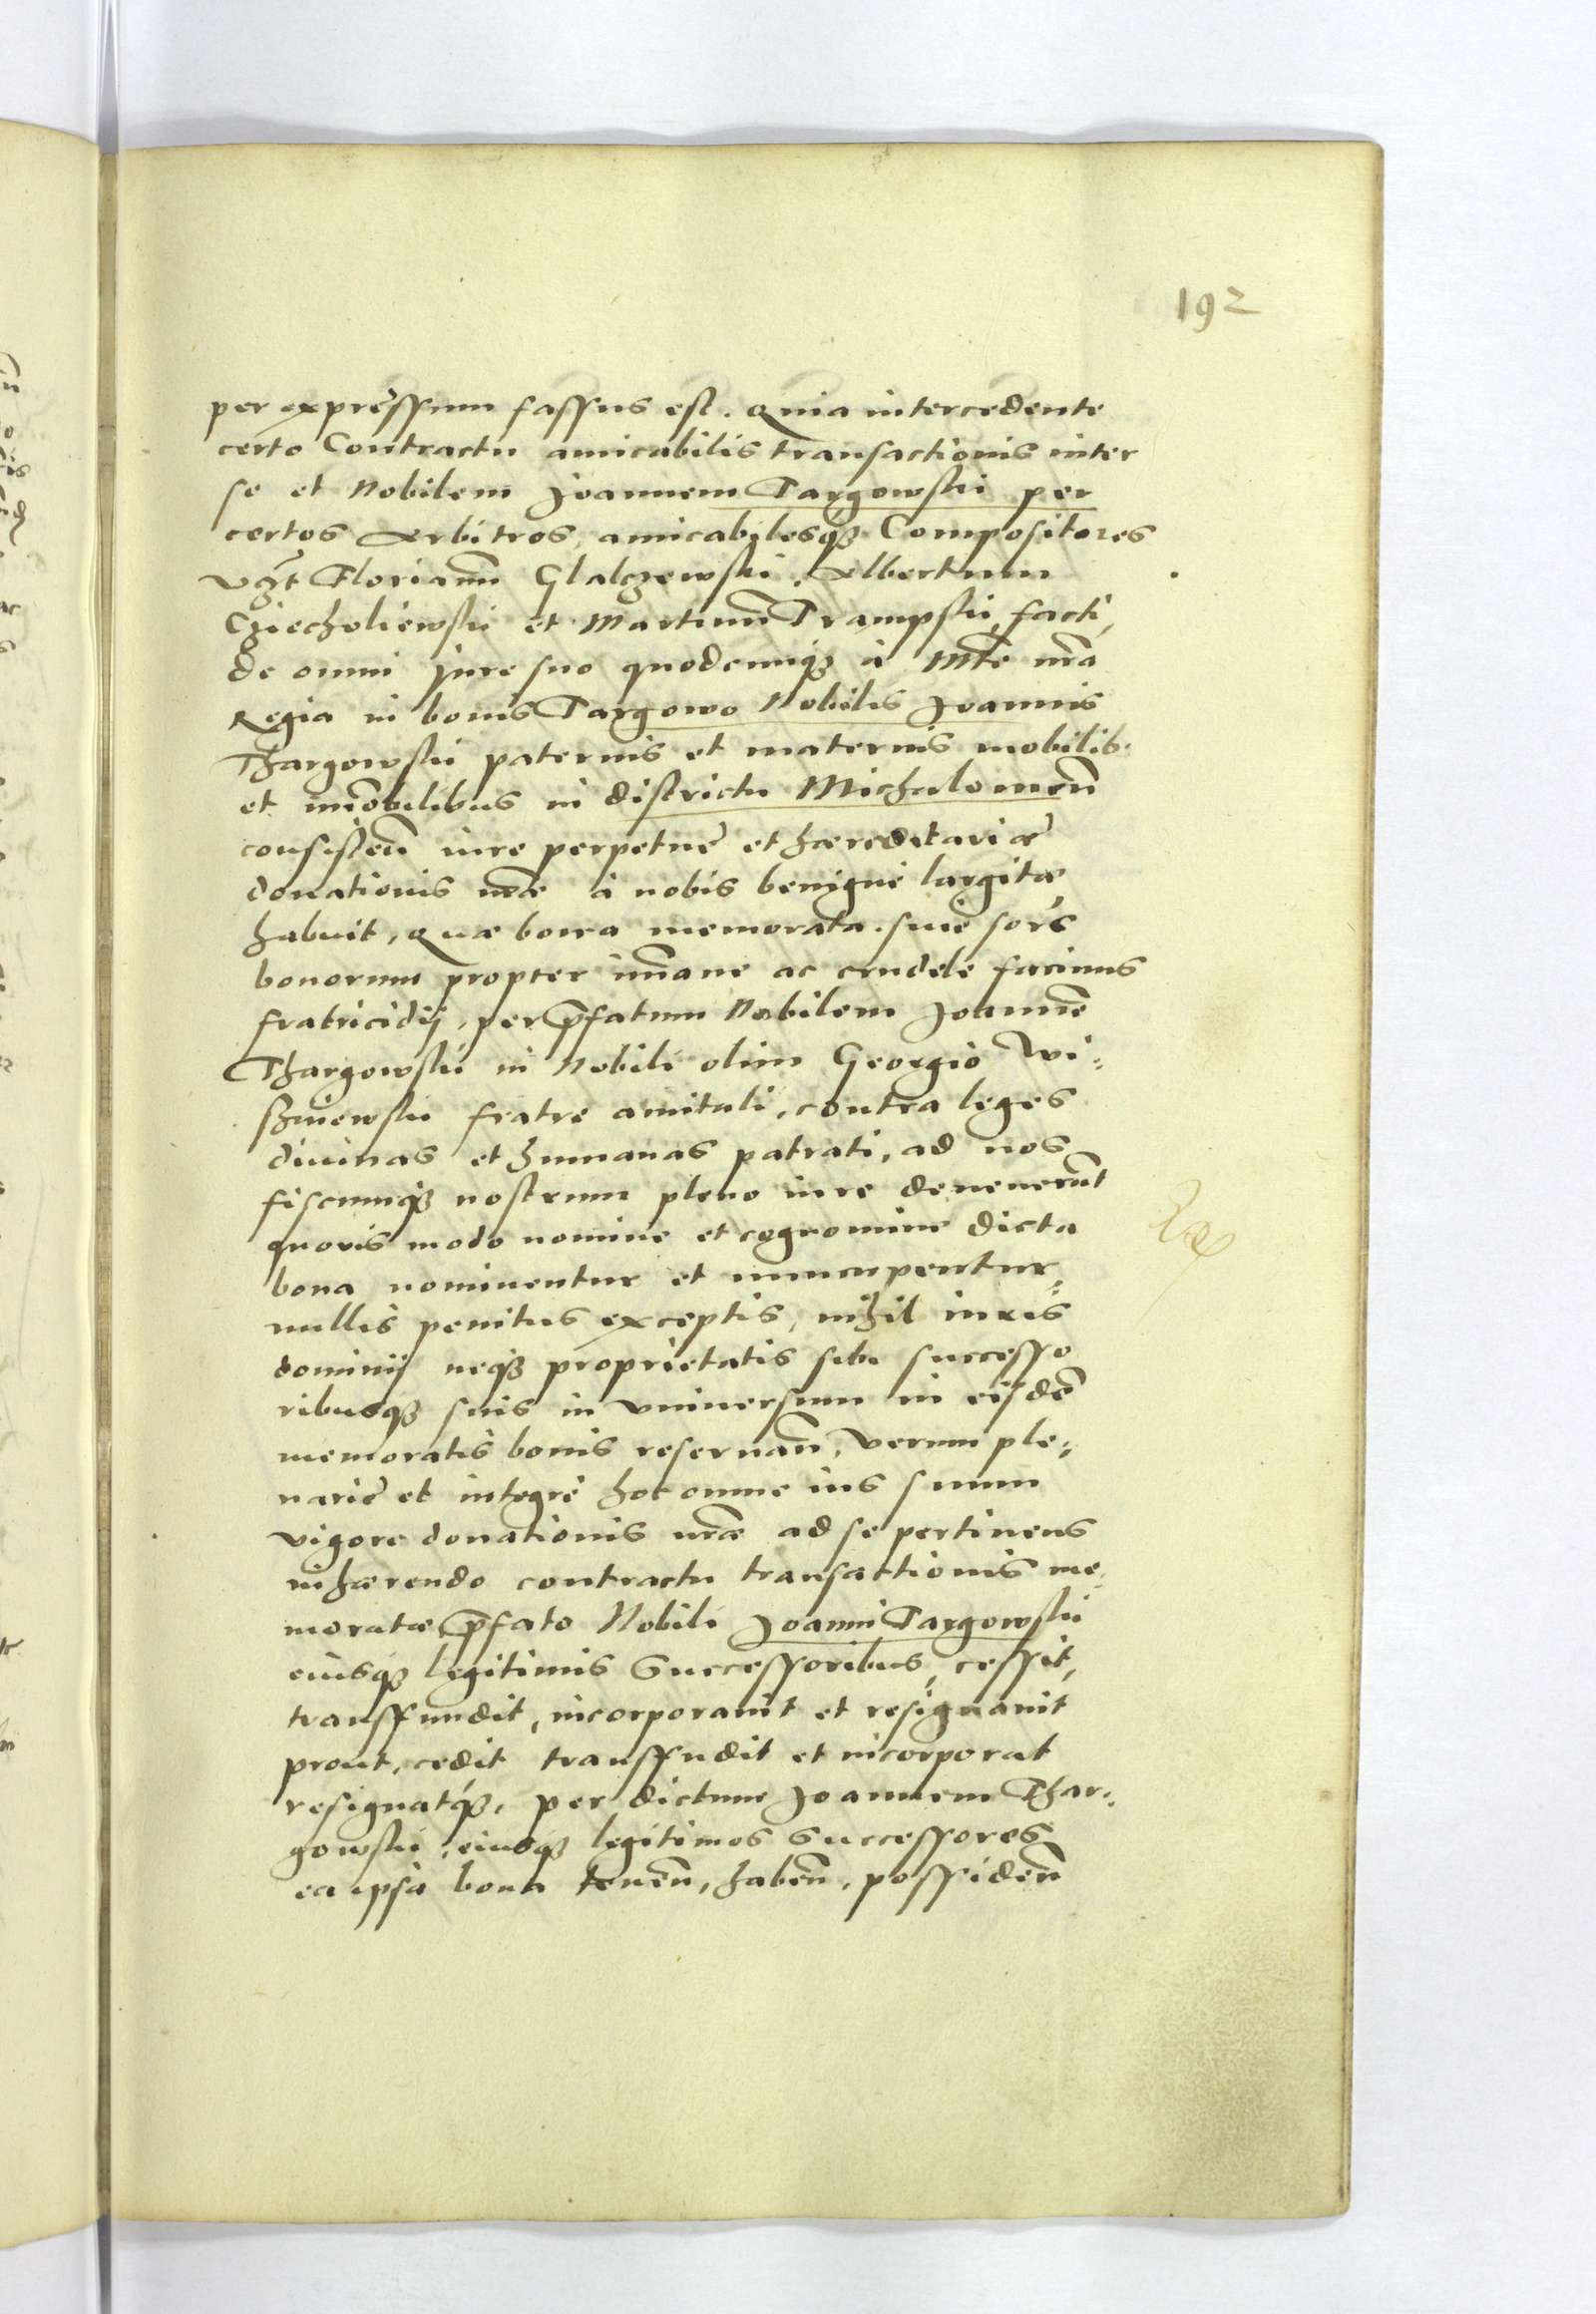 192
per expressum fassus est. Quia intercedente
certo Contractu amicabilis transactionis inter
se et Nobilem Joannem Targowski per
certos Arbitros, amicabilesqȝ Compositores
vȝt Florianū Glalczewski, Albertum
Cziecholiewski et Martinū Trampski facti,
de omni Jure suo quodcunqȝ à Mte nrā
Regia in bonis Targowo Nobilis Joannis
Thargowski paternis et maternis mobilib.
et imōbilibus in districtu Michalouien̄
consisten̄ iure perpetuæ et hæreditariæ
donationis nrāe à nobis benigne largitæ
habuit, Quæ bona memorata siue sors
bonorum propter im̄ane ac crudele facinus
fratricidij, per p̄fatum Nobilem Joannē
Thargowski in Nobili olim Georgio Wi¬
szniewski fratre amitali, contra leges
diuinas et humanas patrati, ad nos
fiscumqȝ nostrum pleno iure deuenerūt
quovis modo nomine et cognomine dicta
bona nominentur et nuncupentur
nullis penitus exceptis, nihil iuris
dominij neqȝ proprietatis sibi successo
ribusqȝ suis in vniuersum in eisdē
memoratis bonis reseruan̄, verum ple¬
narie et integrè hoc omne ius suum
vigore donationis nrāe ad se pertinens
inhærendo contractu transactionis me¬
moratæ p̄fato Nobili Joanni Targowski
eiusqȝ legitimis Successoribus, cessit,
transfundit, incorporauit et resignauit
prout, cedit transfudit et incorporat
resignatqȝ, per dictum Joannem Thar¬
gowski, eiusqȝ legitimos Successores
ea ipsa bona tenen̄, haben̄, possiden̄